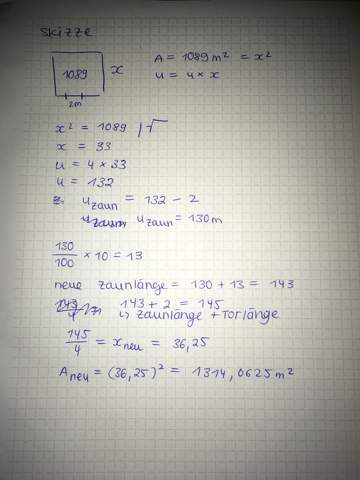 Skizze
1089 x A = 1089 m² = x²
u = 4 × x
2m
x² = 1089 | √
x = 33
u = 4 × 33
u = 132
u zaun = 132 - 2
u zaun = 130 m
130/100 × 10 = 13
neue zaunlänge = 130 + 13 = 143
143 + 2 = 145
↳ zaunlänge + Torlänge
145/4 = x neu = 36,25
A neu = (36,25)² = 1314,0625 m²